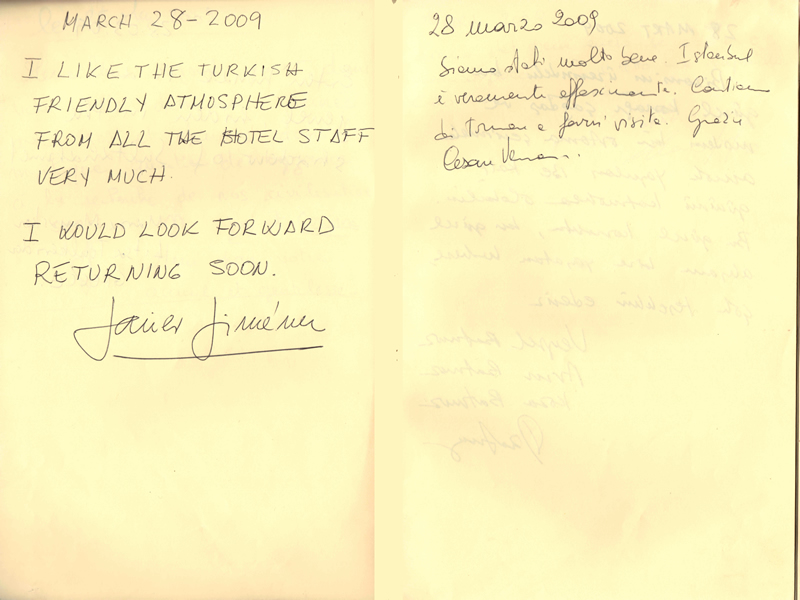 MARCH 28-2009
I LIKE THE TURKISH
FRIENDLY ATMOSPHERE
FROM ALL THE HOTEL STAFF
VERY MUCH.
I WOULD LOOK FORWARD
RETURNING SOON.
Javier Jiménez
28 marzo 2009
Siamo stati molto bene. Istanbul
è veramente affascinante. Contiamo
di tornare e farvi visita. Grazie
Cesare